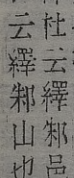 杜云繹邾邑
云繹邾山也